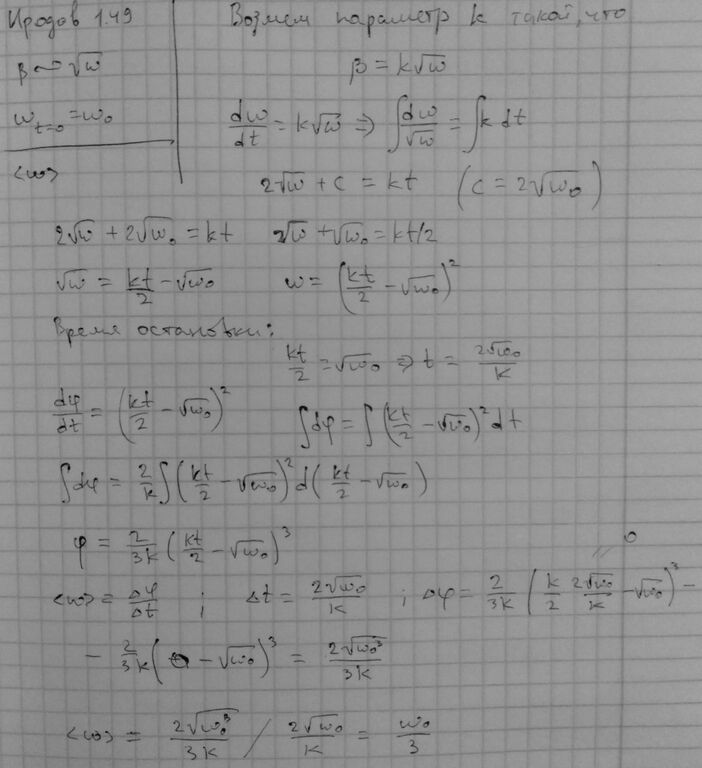 Иродов 1.49
Возмем параметр k такой, что
β ~ √ω
β = k√ω
ω_{t=0} = ω₀
dω/dt = k√ω ⇒ ∫dω/√ω = ∫k dt
<ω>
2√ω + c = kt (c = 2√ω₀)
2√ω + 2√ω₀ = kt √ω + √ω₀ = kt/2
√ω = kt/2 − √ω₀ ω = (kt/2 − √ω₀)²
Время остановки:
kt/2 = √ω₀ ⇒ t = 2√ω₀/k
dφ/dt = (kt/2 − √ω₀)² ∫dφ = ∫(kt/2 − √ω₀)² dt
∫dφ = 2/k ∫(kt/2 − √ω₀)² d(kt/2 − √ω₀)
φ = 2/3k (kt/2 − √ω₀)³
0
<ω> = Δφ/Δt ; Δt = 2√ω₀/k ; Δφ = 2/3k (k/2 2√ω₀/k − √ω₀)³ −
− 2/3k (− √ω₀)³ = 2√ω₀³/3k
<ω> = 2√ω₀³/3k / 2√ω₀/k = ω₀/3